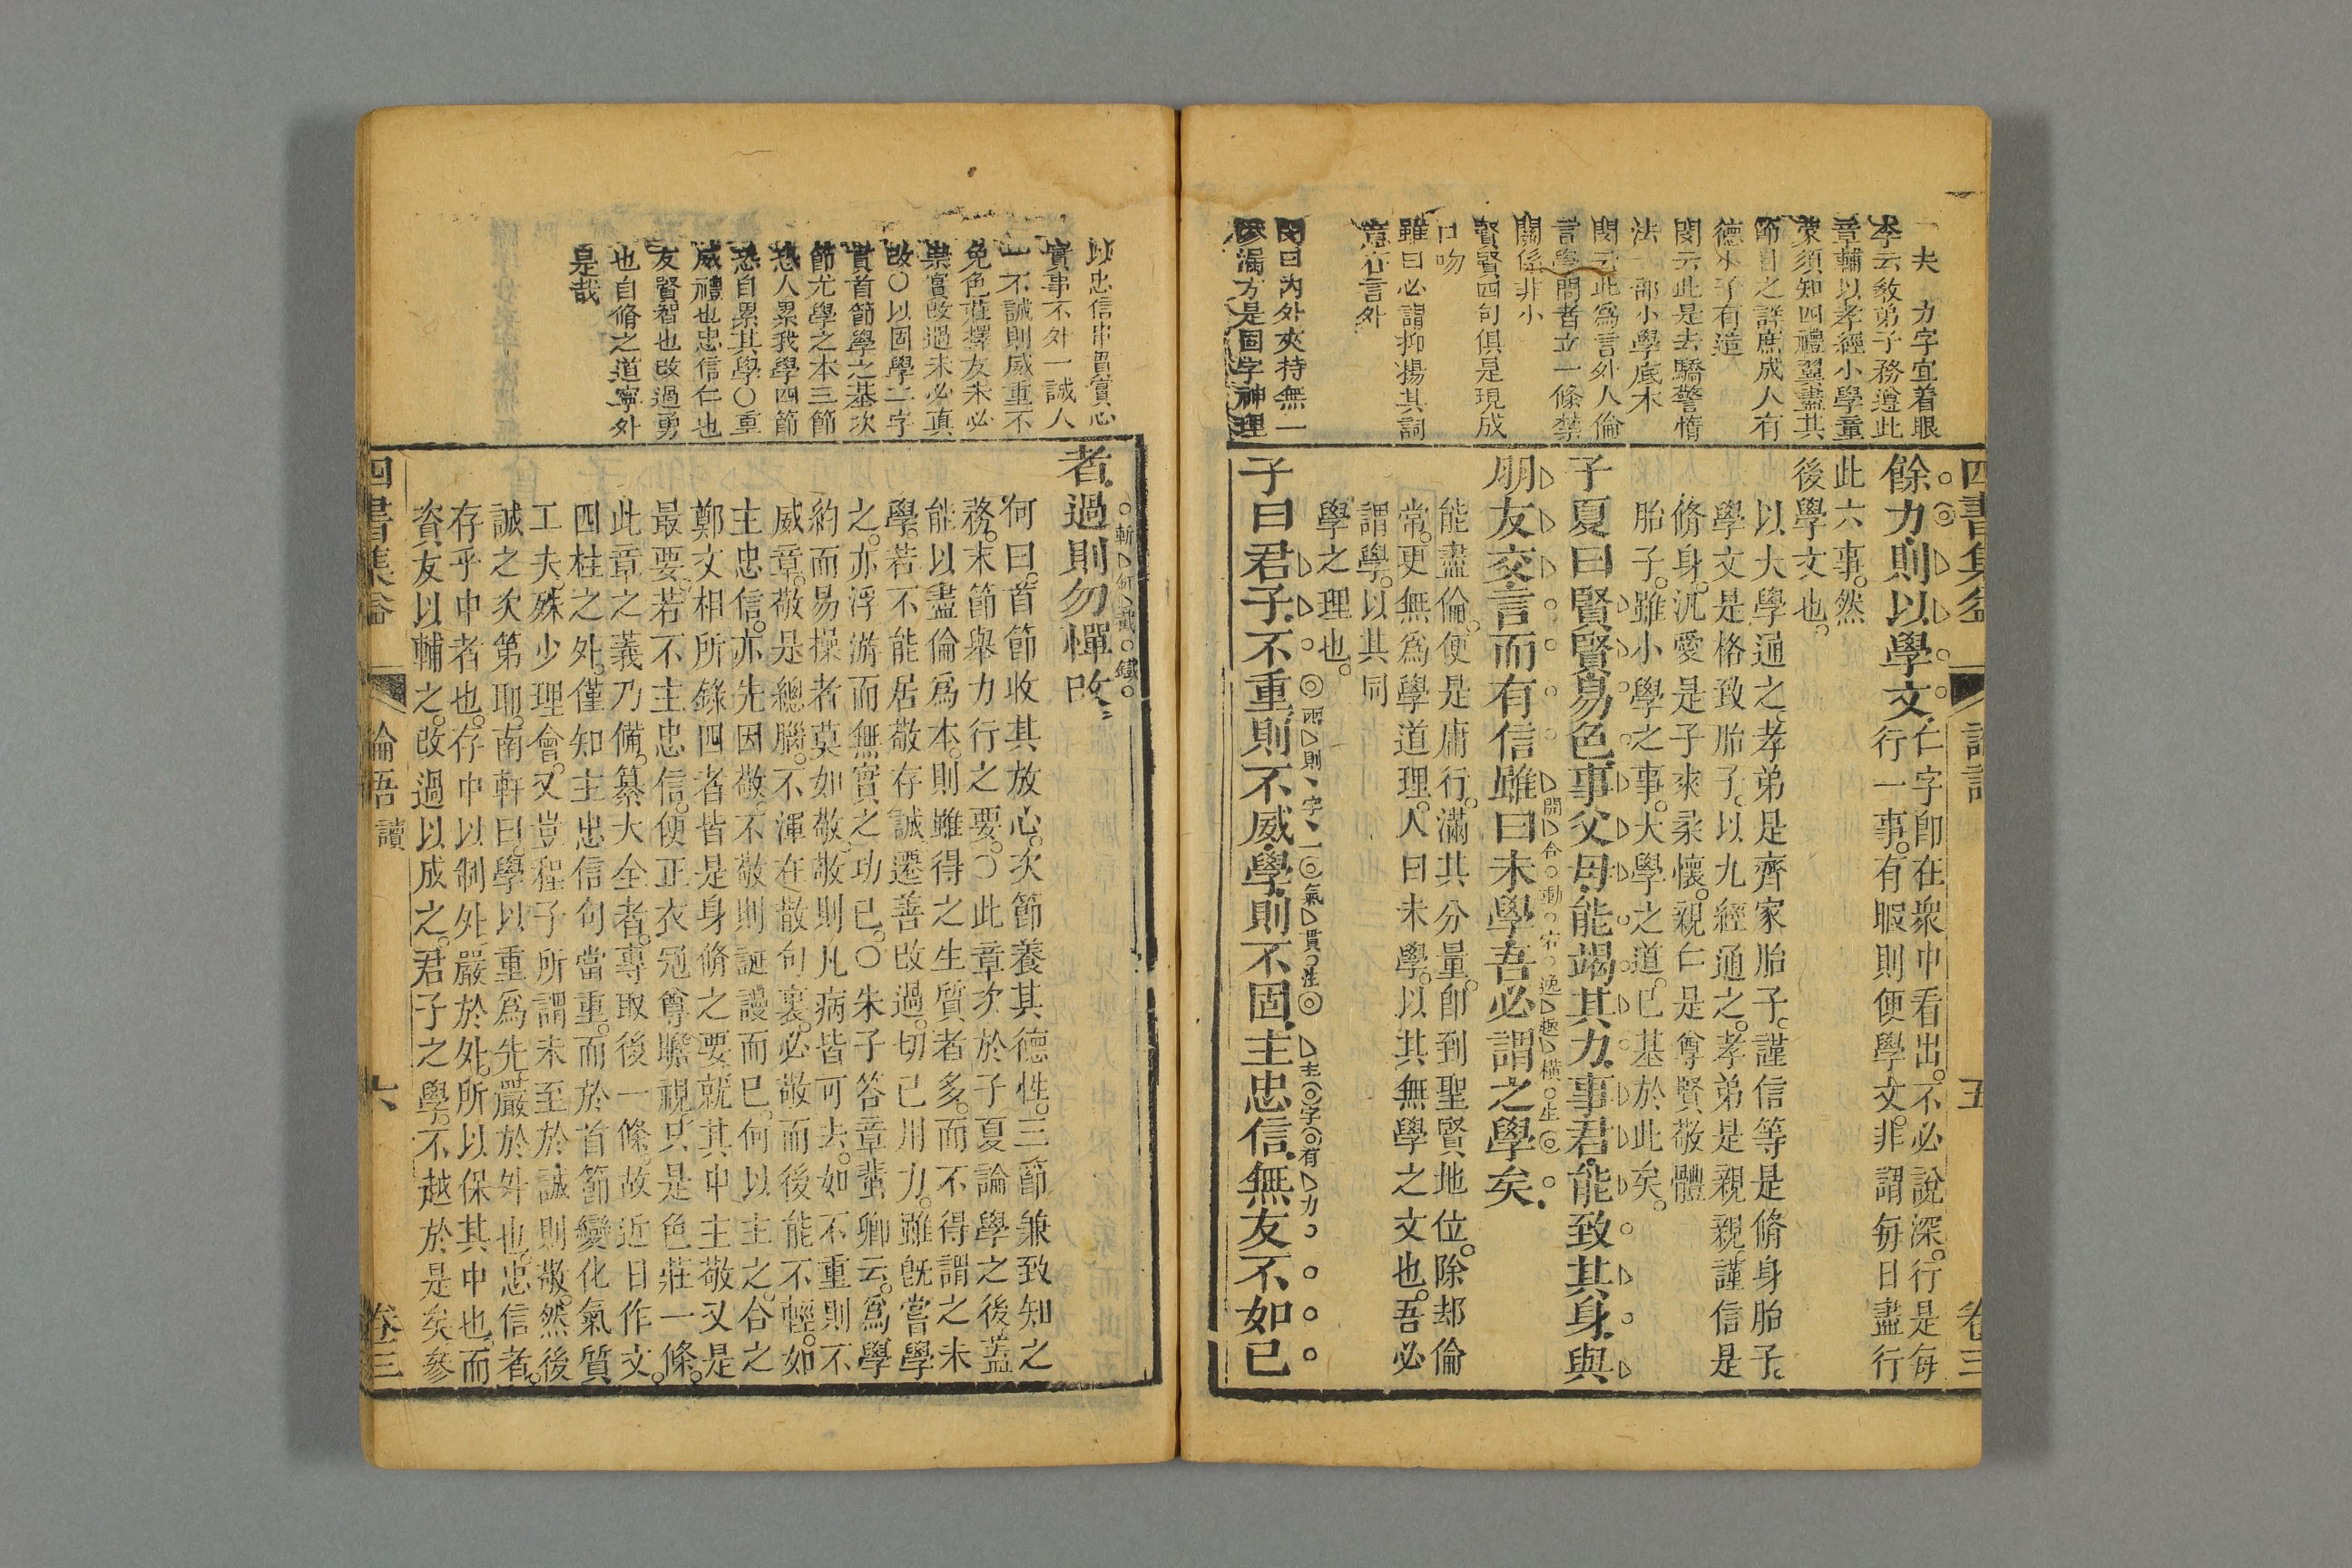 四書集益
論語
五
卷三
一夫 力字宜着眼
李云敎弟子務遵此
章輔以孝經小學童
蒙須知四禮翼盡其
節目之詳庶成人有
德小子有造
閔云此是去驕警惰
法一部小學底本
閔云此爲言外人倫
言學問者立一條禁
關係非小
賢賢四句俱是現成
口吻
雖曰必謂抑揚其詞
意在言外
閔曰內外夾持無一
滲漏方是固字神理
餘力則以學文
仁字卽在衆中看出不必說深行是每
行一事有暇則便學文非謂每日盡行
此六事然
後學文也
以大學通之孝弟是齊家胎子謹信等是脩身胎子
學文是格致胎子以九經通之孝弟是親親謹信是
脩身汎愛是子來柔懷親仁是尊賢敬體
胎子雖小學之事大學之道已基於此矣
子夏曰賢賢易色事父母能竭其力事君能致其身與
朋友交言而有信雖曰未學吾必謂之學矣
開合動宕逸趣橫生
能盡倫便是庸行滿其分量卽到聖賢地位除却倫
常更無爲學道理人曰未學以其無學之文也吾必
謂學以其同
學之理也
子曰君子不重則不威學則不固主忠信無友不如己
兩則字一氣貫注
主字有力
以忠信串貫實心
實事不外一誠人
一不誠則威重不
免色莊擇友未必
崇實改過未必眞
改〇以固學二字
貫首節學之基次
節尤學之本三節
恐人累我學四節
恐自累其學〇重
威禮也忠信仁也
友賢智也改過勇
也自脩之道寧外
是哉
者過則勿憚改
斬釘截鐵
何曰首節收其放心次節養其德性三節兼致知之
務末節舉力行之要〇此章次於子夏論學之後蓋
能以盡倫爲本則雖得之生質者多而不得謂之未
學若不能居敬存誠遷善改過切已用力雖旣嘗學
之亦浮游而無實之功已〇朱子答章蜚卿云爲學
約而易操者莫如敬敬則凡病皆可去如不重則不
威章敬是總腦不渾在散句裏必敬而後能不輕如
主忠信亦先因敬不敬則誕謾而已何以主之合之
鄭文相所錄四者皆是身脩之要就其中主敬又是
最要若不主忠信便正衣冠尊瞻視只是色莊一條
此章之義乃備纂大全者專取後一條故近日作文
四柱之外僅知主忠信句當重而於首節變化氣質
工夫殊少理會又豈程子所謂未至於誠則敬然後
誠之次第耶南軒曰學以重爲先嚴於外也忠信者
存乎中者也存中以制外嚴於外所以保其中也而
資友以輔之改過以成之君子之學不越於是矣參
讀
四書集益
論語
六
卷三